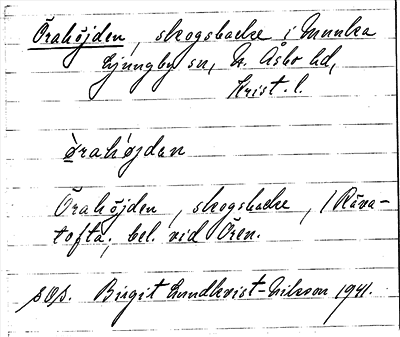 Örahöjden, skogsbacke i Munka
Ljungby sn, N. Åsbo hd,
Krist. l.
òrahö́jdan
Örahöjden, skogsbacke, i Röva-
tofta; bel. vid Ören.
SOS. Birgit Lundkvist-Nilsson 1941.